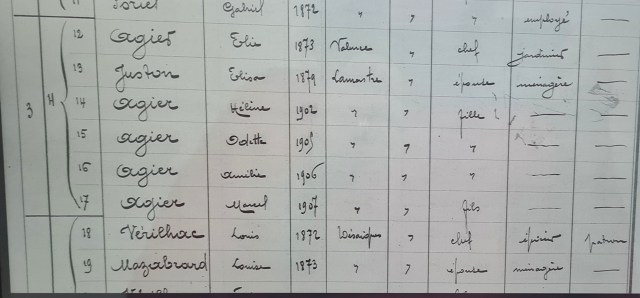 Gabriel 1872 " " " employé —
12 Agier Elie 1873 Valence " " chef jardinier —
3 4 13 Juston Elisa 1879 Lamastre " épouse ménagère —
14 Agier Hélène 1902 " " fille — —
15 Agier Odette " " " — —
16 Agier Amélie 1906 " " " — —
17 Agier Marcel 1907 " " fils — —
18 Vérilhac Louis 1872 " chef épicier patron
19 Mazabrard Louise 1873 " " épouse ménagère —